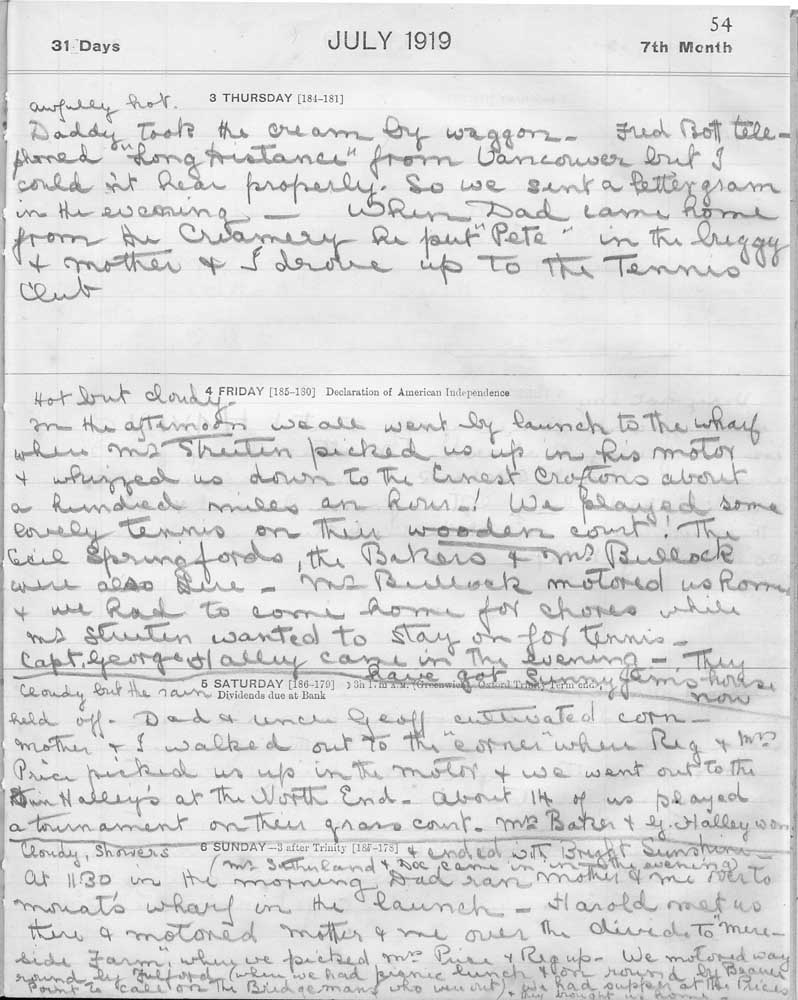 54
31 Days JULY 1919 7th Month
3 THURSDAY [184-181]
awfully hot.
Daddy took the cream by waggon - Fred Bott tele-
phoned "Long Distance" from Vancouver but I
could n't hear properly. So we sent a lettergram
in the evening - When Dad came home
from the Creamery he put "Pete" in the buggy
& mother & I drove up to the Tennis
Club
4 FRIDAY [185-180] Declaration of American Independence
Hot but cloudy -
In the afternoon we all went by launch to the wharf
where Mr Streeten picked us up in his motor
& whizzed us down to the Ernest Croftons about
a hundred miles an hour-! We played some
lovely tennis on their wooden court! The
Cecil Springfords, the Bakers & Mr Bullock
were also there - Mr Bullock motored us home
& we had to come home for chores while
Mr Streeten wanted to stay on for tennis -
Capt. George Halley came in the evening - They
have got Sunny Jim's house
now
5 SATURDAY [186-179] (Greenwich) Oxford Trinity Term ends,
Dividends due at Bank
Cloudy but the rain
held off. Dad & Uncle Geoff cultivated corn -
Mother & I walked out to the "corner" where Reg & Mrs
Price picked us up in the motor & we went out to the
Halley's at the North End - about 14 of us played
a tournament on their grass court. Mrs Baker & G. Halley won
6 SUNDAY-3 after Trinity [187-178]
Cloudy, Showers & ended with bright Sunshine -
(Mr Sutherland & Doc came in in the evening)
At 11.30 in the morning Dad ran Mother & me over to
Mouat's wharf in the launch - Harold met us
there & motored mother & me over the divide to "Mere-
side Farm", where we picked Mrs Price & Reg up - We motored way
round by Fulford (where we had picnic lunch & on round by Beaver
Point to call on the Bridgemans who were out) & we had supper at the Prices
& they brought us home